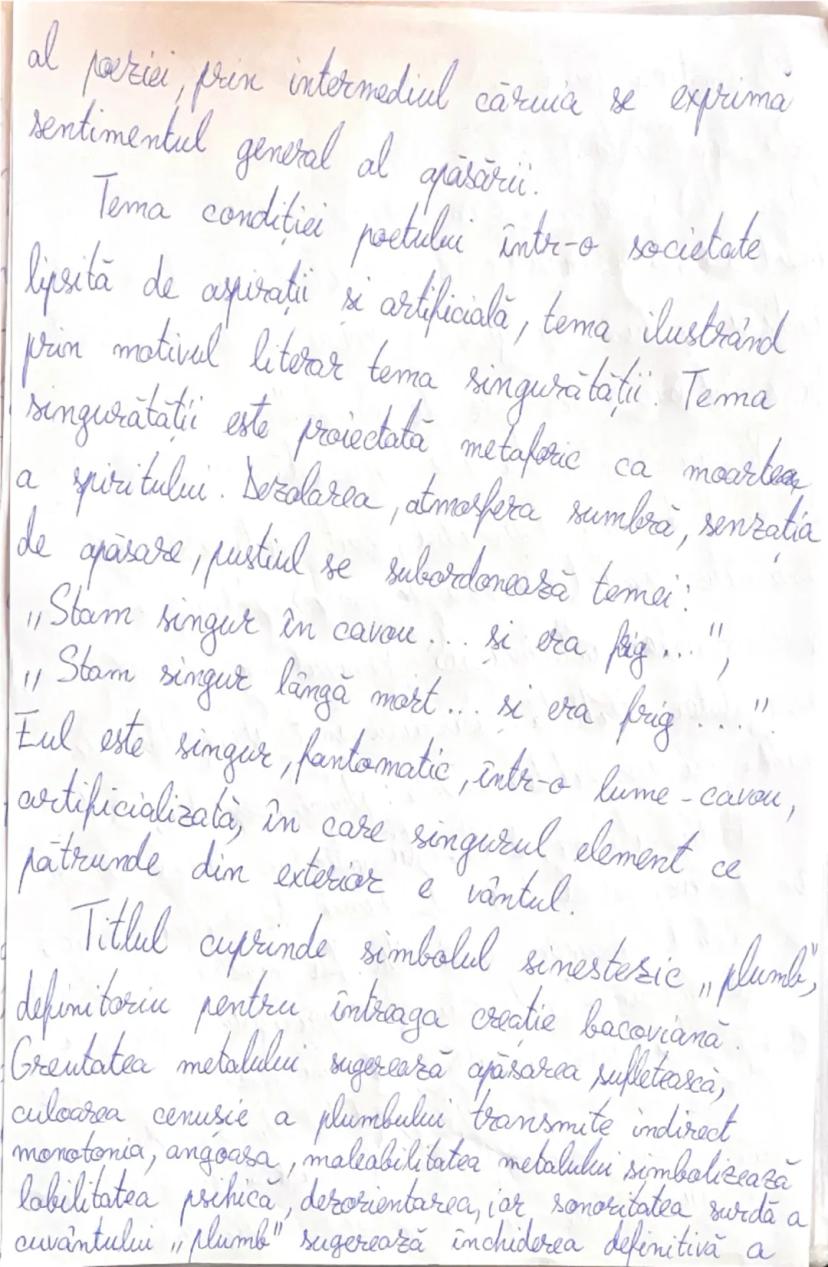 al poeziei, prin intermediul căruia se exprimă
sentimentul general al apăsării.
Tema condiției poetului într-o societate
lipsită de aspirații și artificială, tema ilustrând
prin motivul literar tema singurătății. Tema
singurătății este proiectată metaforic ca moartea
a spiritului. Dezolarea, atmosfera sumbră, senzația
de apăsare, pustiul se subordonează temei:
„Stam singur în cavou... și era frig...",
„Stam singur lângă mort... și era frig...".
Eul este singur, fantomatic, într-o lume-cavou,
artificializată, în care singurul element ce
pătrunde din exterior e vântul.
Titlul cuprinde simbolul sinestezic „plumb",
definitoriu pentru întreaga creație bacoviană.
Greutatea metalului sugerează apăsarea sufletească,
culoarea cenușie a plumbului transmite indirect
monotonia, angoasa, maleabilitatea metalului simbolizează
labilitatea psihică, dezorientarea, iar sonoritatea surdă a
cuvântului „plumb" sugerează închiderea definitivă a